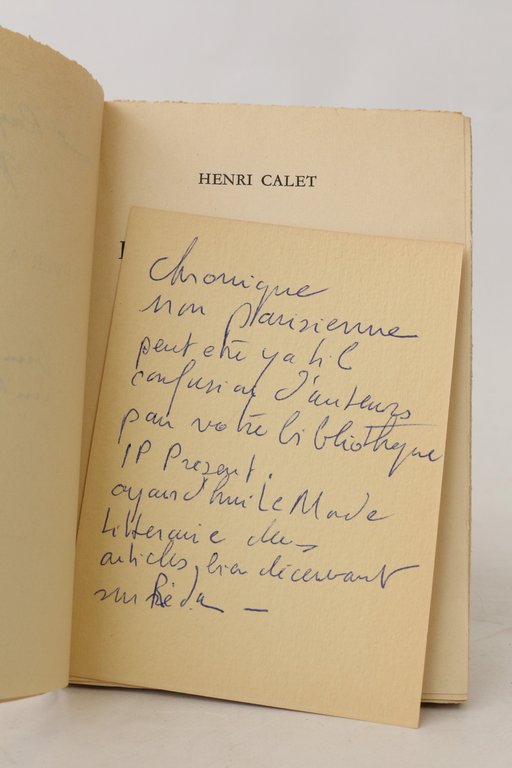 HENRI CALET
chronique
non parisienne
peut etre y a t il
confusion d'auteurs
par votre bibliothèque
JP Present.
aujourd'hui Le Monde
Litteraire deux
articles bien décevant
sur Réda —